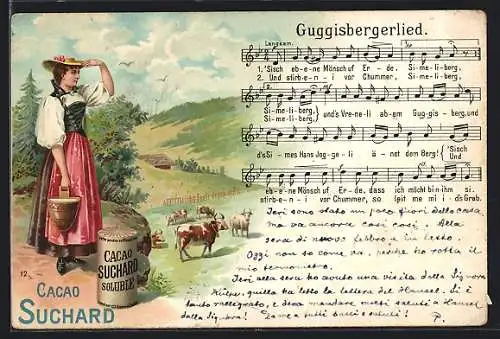 Guggisbergerlied.
Langsam.
1. 'Sisch eb-e-ne Mönsch uf Er-de, Si-me-li-berg,
2. Und stirb-e-n i vor Chummer, Si-me-li-berg,
Si-me-li-berg,
Si-me-li-berg,
und's Vre-ne-li ab-em Gug-gis-berg, und
d's Si-mes Hans Jog-ge-li ä-net dem Berg!
'Sisch
Und
eb-e-ne Mönsch uf Er-de, dass ich möcht bin ihm si.
stirb-e-n i vor Chummer, so leit me mi i ds Grab.
CACAO
SUCHARD
SOLUBLE
12
CACAO
SUCHARD
Ieri sono stato un poco fuori della casa
ma va ancora così così. Alla
sera di nuovo febbre a letto.
Oggi non so come va, perchè ho rotto il
mio termometro.
Ieri alla sera ho avuto una visita della Signora
quella ha letto la lettera del Hansel. Si è
tanto rallegrata, e deve mandare molti saluti a Hansel
dalla Signora! tutti baci e saluti!
P.